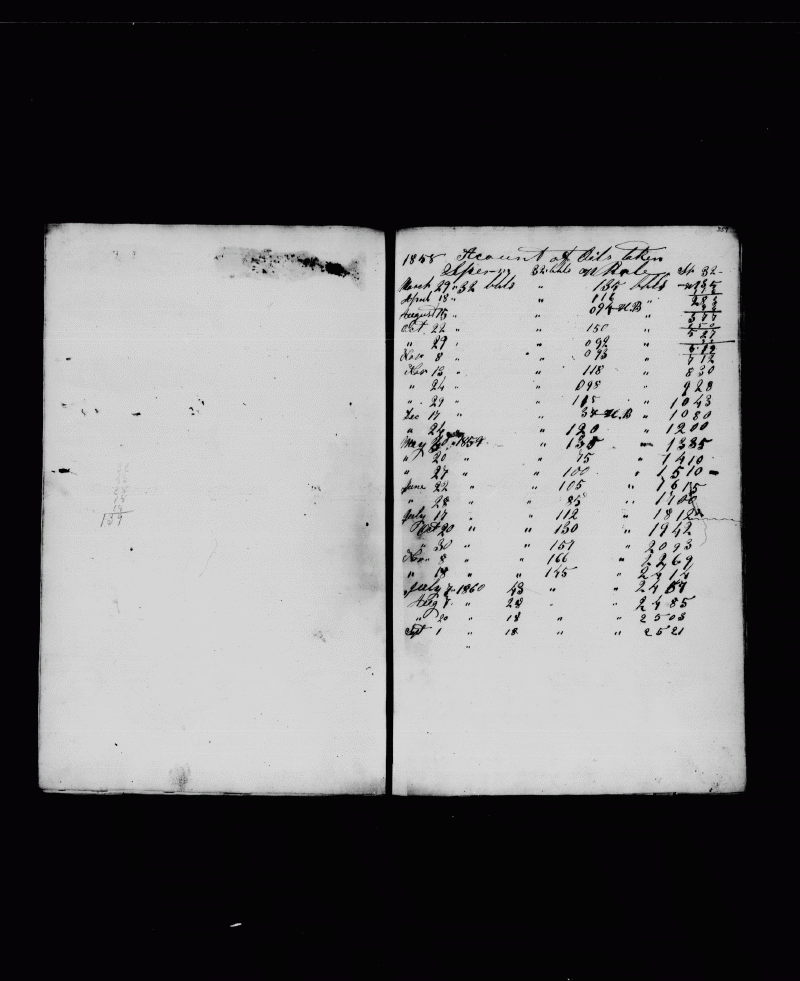 139
359
1858 Account of Oils taken
Sperm 32 bbls or Role Sp 32
March 29 " 32 bbls " 135 bbls 135
April 18 " " 116 " 283
August 15 " " 094 H.B " 377
Oct. 22 " " 150 " 527
" 29 " " 092 " 619
Nov 8 " " 093 " 712
Nov 13 " " 118 " 830
" 24 " " 098 " 928
" 29 " " 115 " 1043
Dec 17 " " 37 H.B " 1080
" 24 " " 120 " 1200
May 1859 " 135 " 1335
" 20 " " 75 " 1410
" 27 " " 100 " 1510
June 22 " " 105 " 1615
" 28 " " 85 " 1700
July 17 " " 112 " 1812
Oct 20 " " 130 " 1942
" 30 " " 151 " 2093
Nov 8 " " 166 " 2269
" 18 " " 145 " 2414
July 7 1860 43 " " 2457
Aug 7 " 28 " " 2485
" 20 " 18 " " 2503
Sept 1 " 18 " " 2521
"